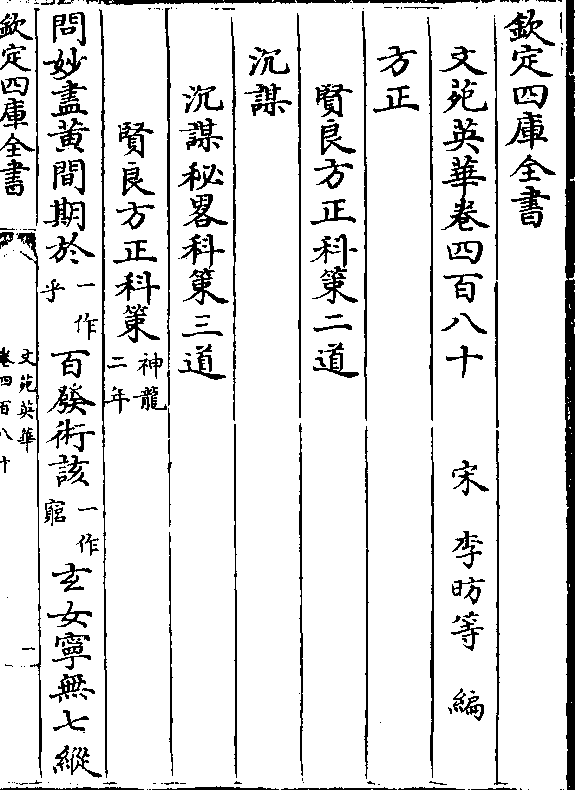 欽定四庫全書
文苑英華卷四百八十 宋 李昉等 編
方正
賢良方正科策二道
沉謀
沉謀秘畧科策三道
賢良方正科策 神龍二年
問妙盡黄間期於 一作乎 百發術該 一作窮 玄女寧無七縱
欽定四庫全書 文苑英華 卷四百八十 一